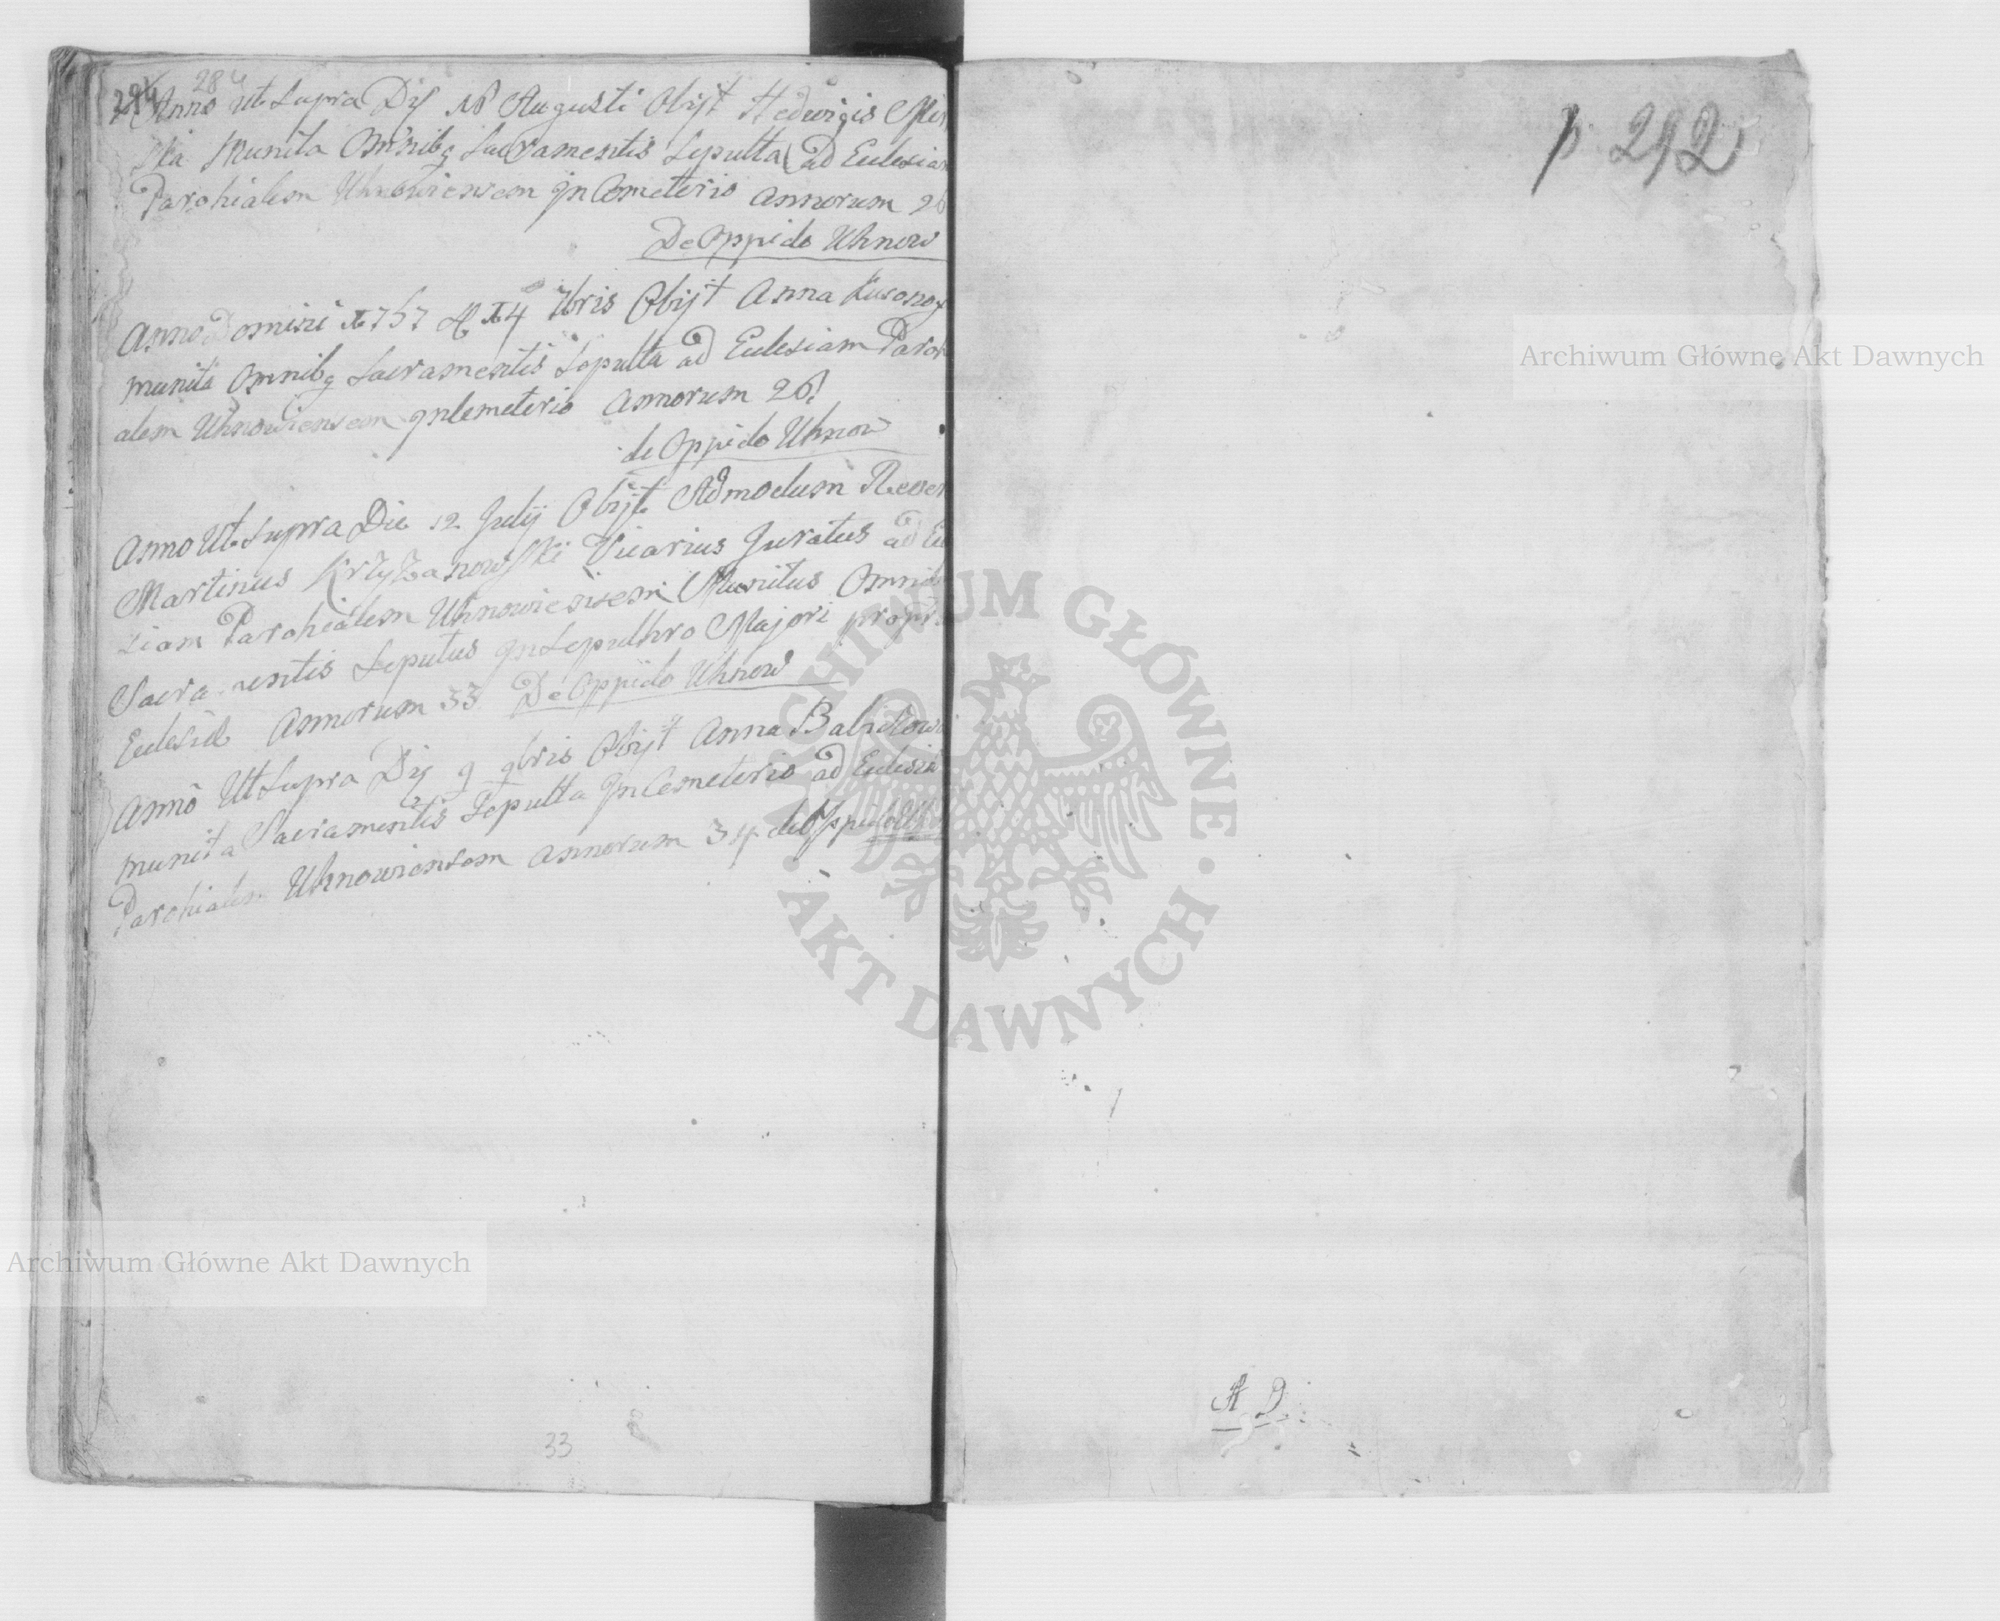 284
Anno ut Supra Die 18 Augusti Obijt Hedwigis
Munita Omnibq Sacramentis Sepulta ad Eclesiam
Parohialem Uhnowiensem Jn Cemeterio annorum 26
De Oppido Uhnow
Anno Domini 1757 14 7bris Obijt Anna
munita Omnibq Sacramentis Sepulta ad Eclesiam Paroh
alem Uhnowiensem Jn Cemeterio Annorum 26
de Oppido Uhnow
Anno Ut Supra Die 12 Julij Obijt Admodum Rever
Martinus Krzyżanowski Vicarius Juratus ad Ec
siam Parohialem Uhnowiensem Munitus Omnib
Sacramentis Seputus Jn Sepulhro Majori propri
Eclesiæ Annorum 33 De Oppido Uhnow
Anno Ut Supra Die 9 9bris Obijt Anna
munita Sacramentis Sepulta Jn Cemeterio ad Eclesia
Parohialem Uhnowiensem annorum 34 de Oppido Uh
33
p. 292
A D
Archiwum Główne Akt Dawnych
Archiwum Główne Akt Dawnych
ARCHIWUM GŁÓWNE · AKT DAWNYCH ·